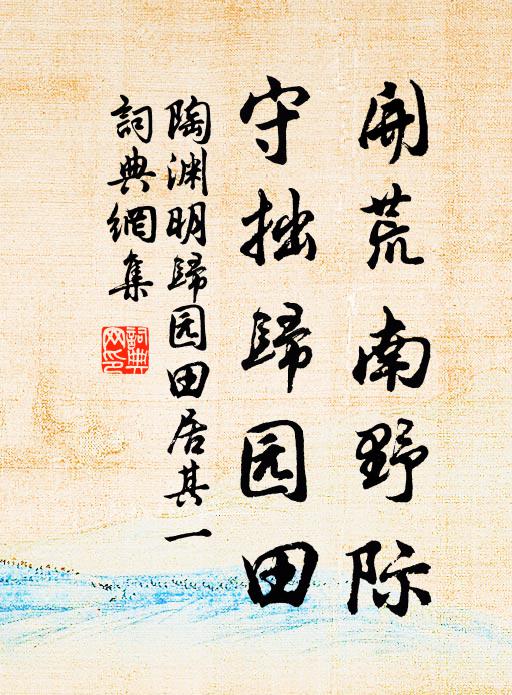 開荒南野际
守拙歸园田
陶渊明歸园田居其一
詞典網集